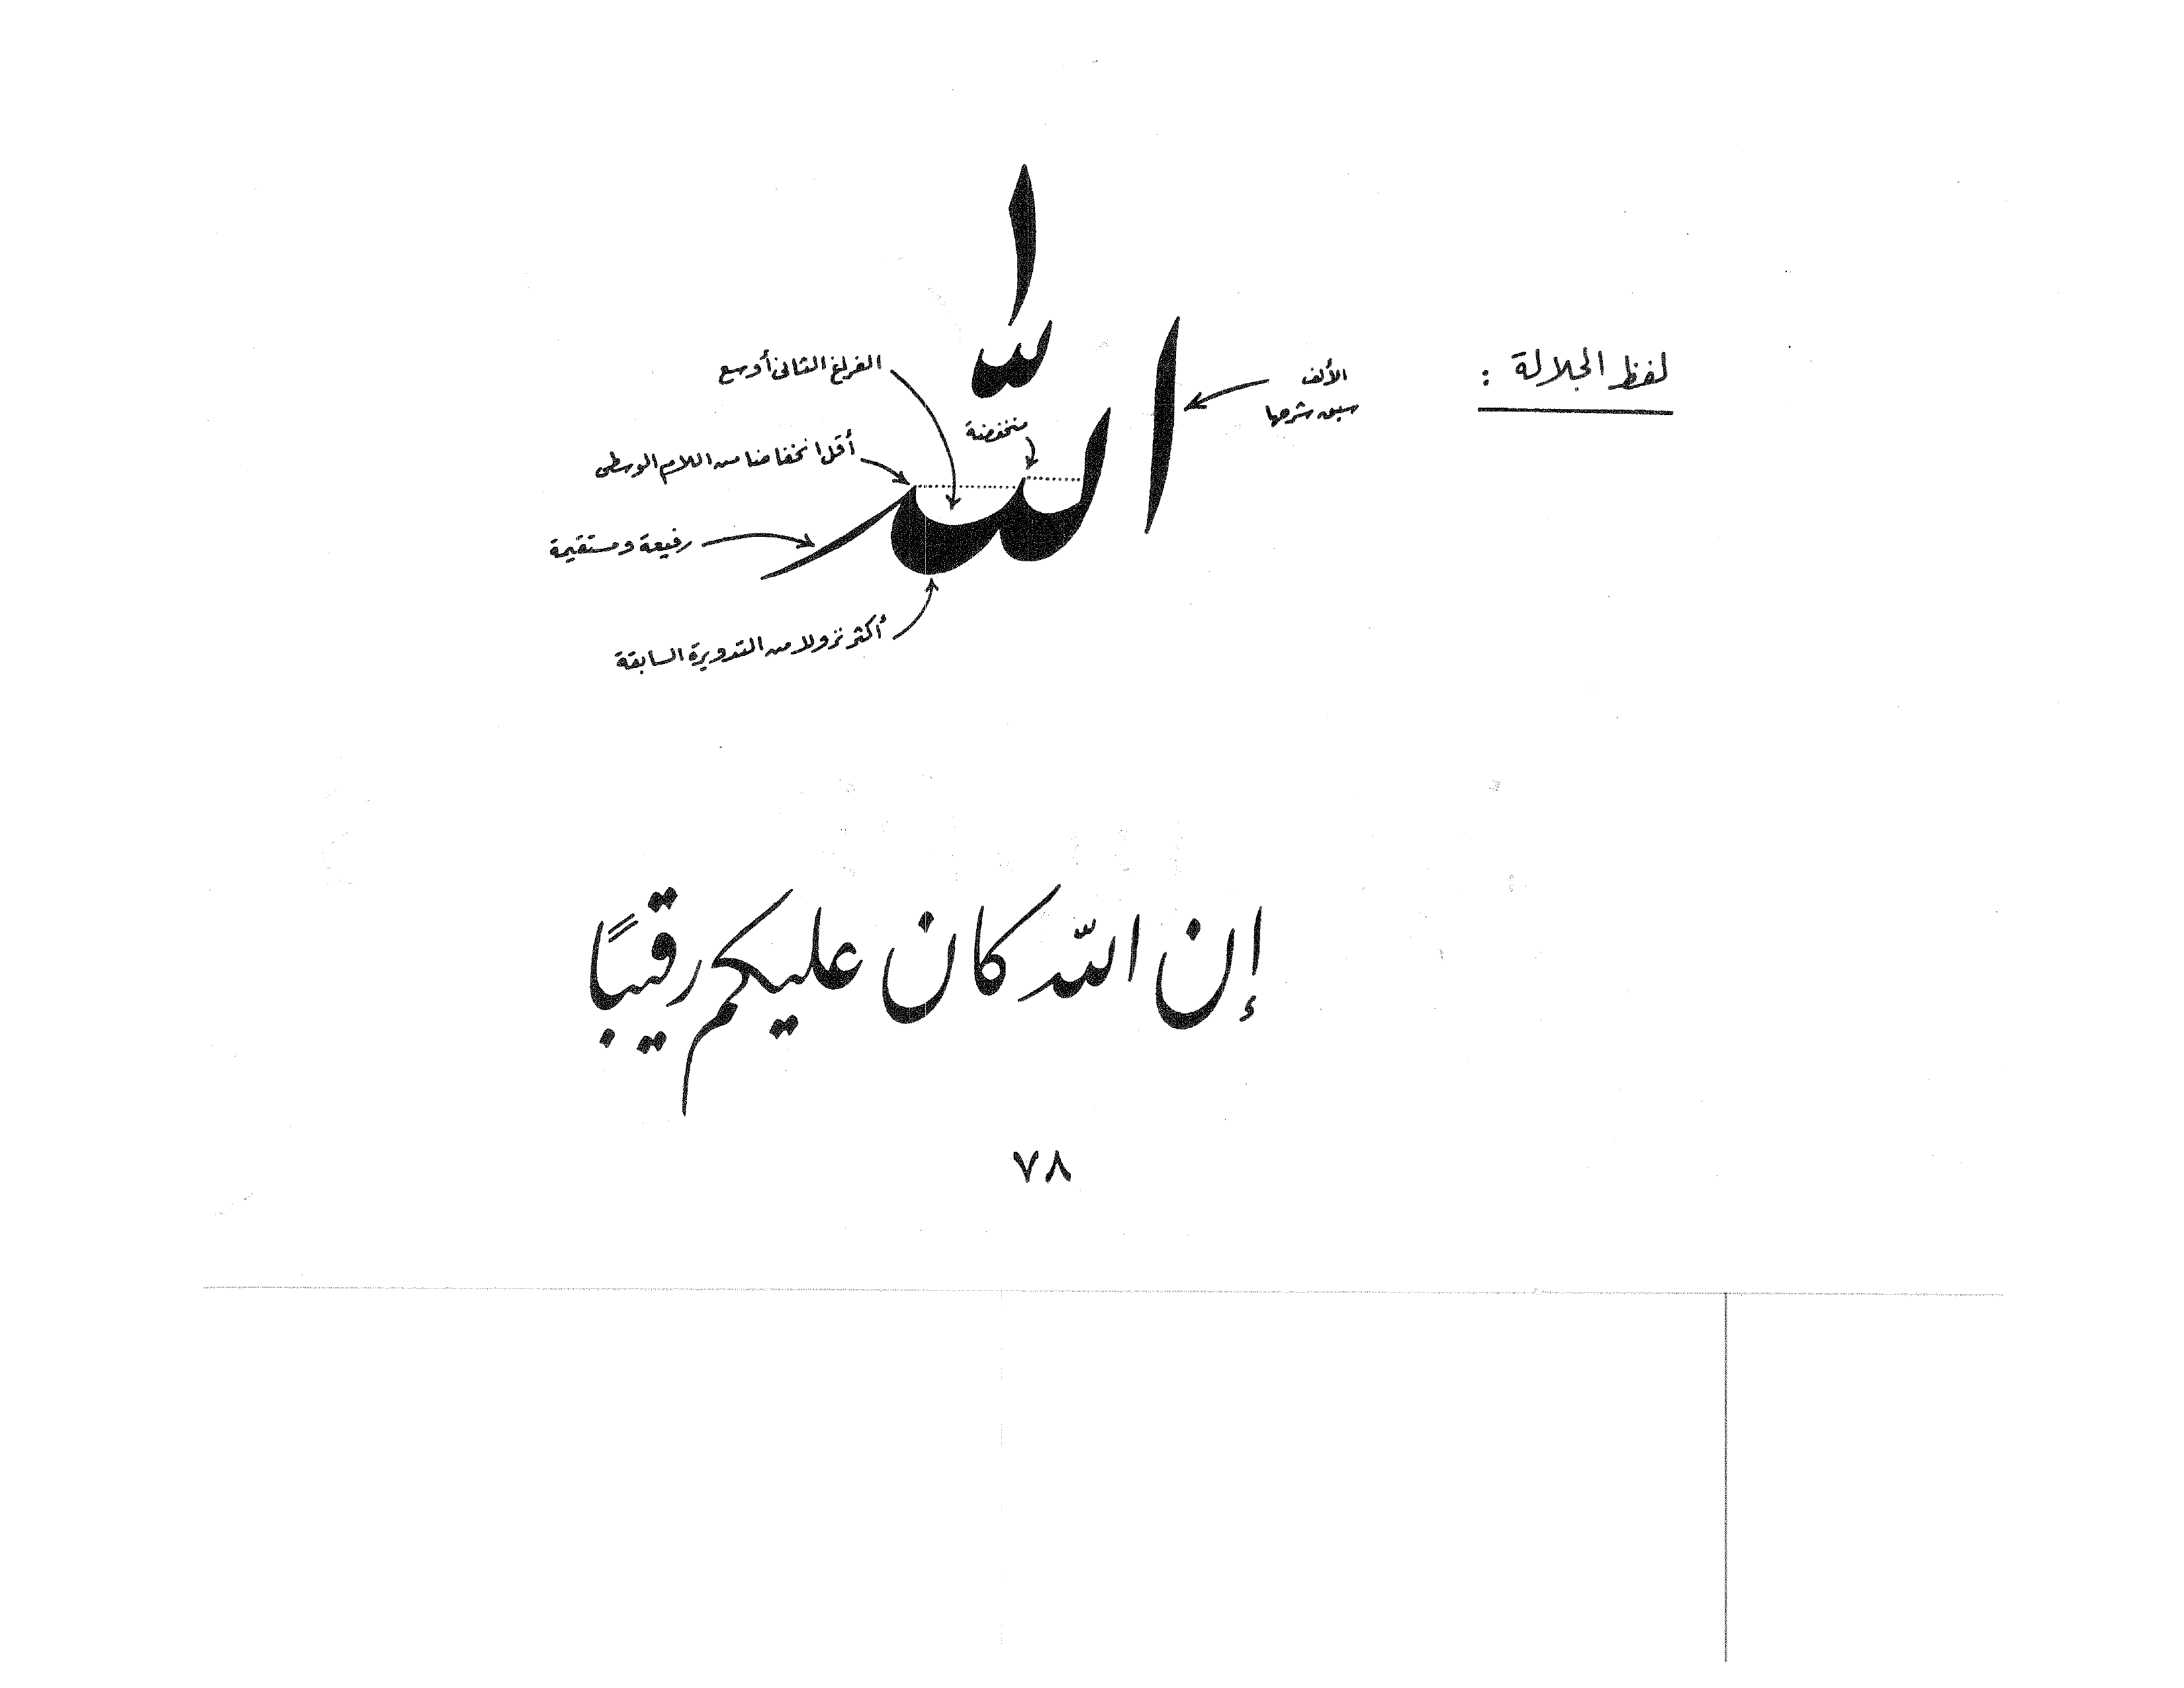 لفظ الجلالة :
الله
الألف
سبق شرحها
الفراغ الثانى أوسع
منخفضة
أقل انخفاضا من اللام الوسطى
رفيعة ومستقيمة
أكثر نزولا من التدويرة السابقة
إن الله كان عليكم رقيبًا
٧٨